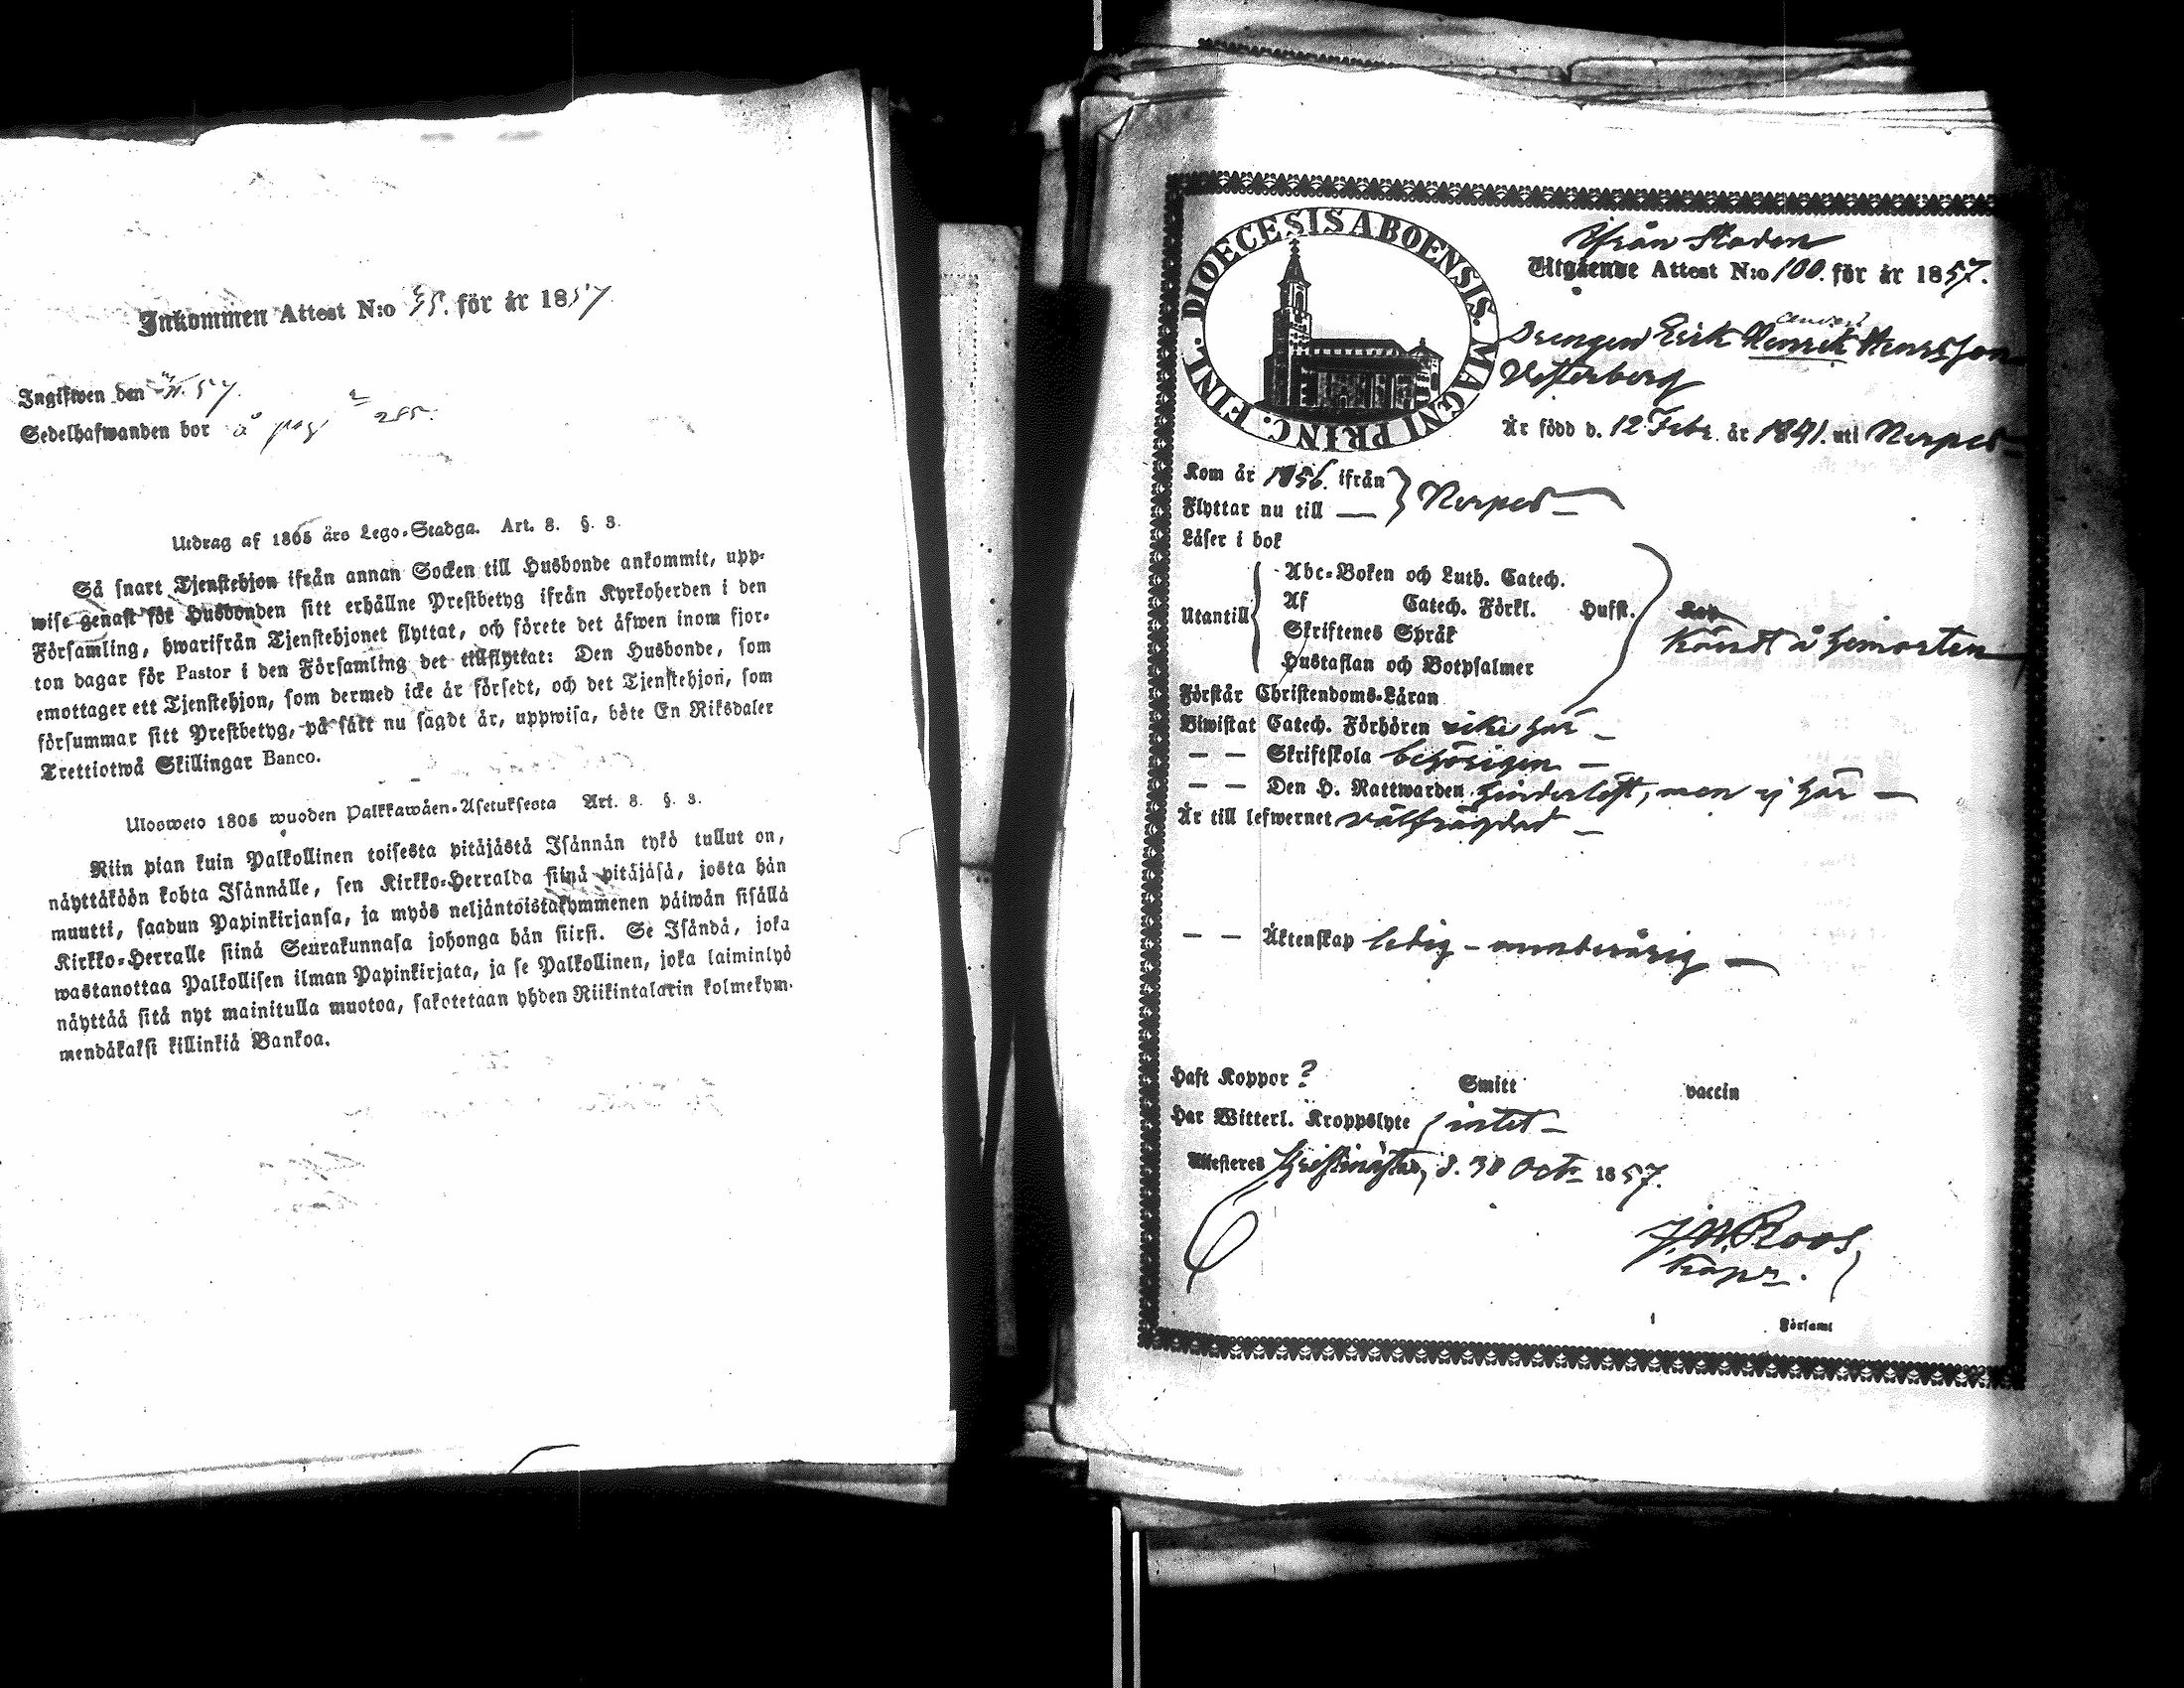 Inkommen Attest N:o 35. för år 1857
Ingifwen den 57.
Sedelhafwanden bor å pag 285.
Utdrag af 1805 års Lego-Stadga. Art. 8. §. 3.
Så snart Tjenstehjon ifrån annan Socken till Husbonde ankommit, upp-
wise genast för Husbonden sitt erhållne Prestbetyg ifrån Kyrkoherden i den
Församling, hwarifrån Tjenstehjonet flyttat, och förete det äfwen inom fjor-
ton dagar för Pastor i den Församling det tillflyttat: Den Husbonde, som
emottager ett Tjenstehjon, som dermed icke är försedt, och det Tjenstehjon, som
försummar sitt Prestbetyg, på sätt nu sagdt är, uppwisa, böte En Riksdaler
Trettiotwå Skillingar Banco.
Ulosweto 1805 wuoden Palkkawäen-Asetuksesta Art. 8. §. 3.
Niin pian kuin Palkollinen toisesta pitäjästä Isännän tykö tullut on,
näyttäköön kohta Isännälle, sen Kirkko-Herralda siinä pitäjäsä, josta hän
muutti, saadun Papinkirjansa, ja myös neljäntoistakymmenen päiwän sisällä
Kirkko-Herralle siinä Seurakunnasa johonga hän siirsi. Se Isändä, joka
wastanottaa Palkollisen ilman Papinkirjata, ja se Palkollinen, joka laiminlyö
näyttää sitä nyt mainitulla muotoa, sakotetaan yhden Riikintalarin kolmekym-
mendäkaksi killinkiä Bankoa.
DIOECESIS ABOENSIS. MAGNI PRINC. FINL.
Ifrån Staden
Utgående Attest N:o 100. för år 1857.
Drengen Erik Henrik Henrsson
Westerberg
Är född d. 12 Febr. år 1841. uti Nerpes
Kom år 1856. ifrån
Flyttar nu till — Nerpes
Läser i bok
Abc-Boken och Luth. Catech.
Utantill Af Catech. Förkl. Hufst.
Skriftenes Språk
Hustaflan och Botpsalmer
Kändt å hemorten
Förstår Christendoms-Läran
Biwistat Catech. Förhören icke här —
— — Skriftskola behörigen —
— — Den H. Nattwarden hinderlöst, men ej här —
Är till lefwernet välfrägdad —
— — Äktenskap ledig — omyndårig —
Haft Koppor ? Smitt vaccin
Har Witterl. Kroppslyte intet —
Attesteres d. 30 Octr 1857.
J. W. Roos,
Kapn.
Församl